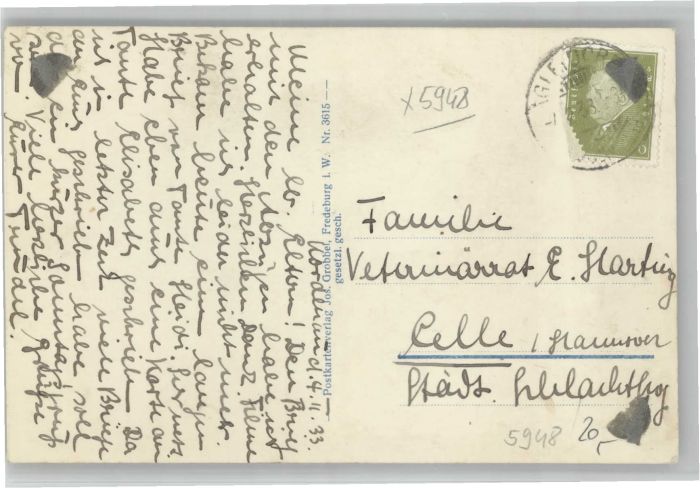 Nordenau d. 4. 11. 33.
Meine lb. Eltern! Den Brief
mit den Marken habe ich
erhalten. Herzlichen Dank. Filme
habe ich leider nicht mehr.
Bekam heute ein langen
Brief von Tante Heidi.
Habe eben auch eine Karte an
Tante Elisabeth geschrieben. Da
ich in letzter Zeit viele Briefe
an Euch geschrieben habe soll
ein kurzer Sonntagsgruß
Viele herzliche Grüße
Eurer Trudel
Postkartenverlag Jos. Grobbel, Fredeburg i. W. Nr. 3615
gesetzl. gesch.
x 5948
Familie
Veterinärrat E. Harting
Celle / Hannover
Städt. Schlachthof
5948 20,-